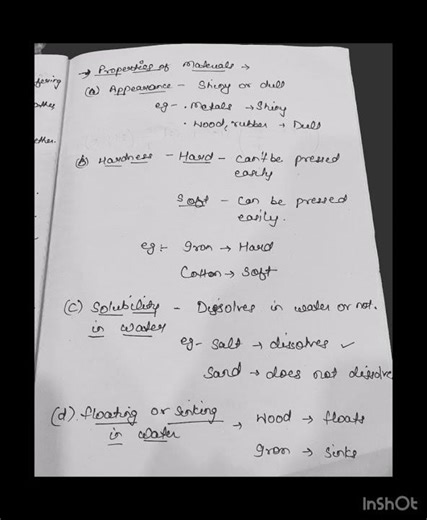 → Properties of Materials →
(a) Appearance - Shiny or dull
eg - . Metals → Shiny
. Wood, rubber → Dull
(b) Hardness - Hard - can't be pressed
easily
Soft - can be pressed
easily.
eg :- Iron → Hard
Cotton → Soft
(c) Solubility - Dissolves in water or not.
in water
eg - salt → dissolves ✓
Sand → does not dissolve
(d). floating or sinking → Wood → floats
in water
Iron → sinks
InShOt